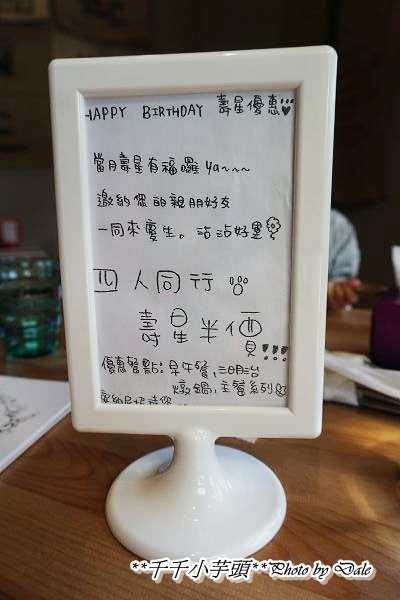 HAPPY BIRTHDAY 壽星優惠!!!
當月壽星有福囉 ya~~~
邀約您的親朋好友
一同來慶生。沾沾好運
四人同行
壽星半價!!!
優惠餐點:早午餐,三明治
燉鍋,主餐系列
**千千小芋頭**Photo by Dale